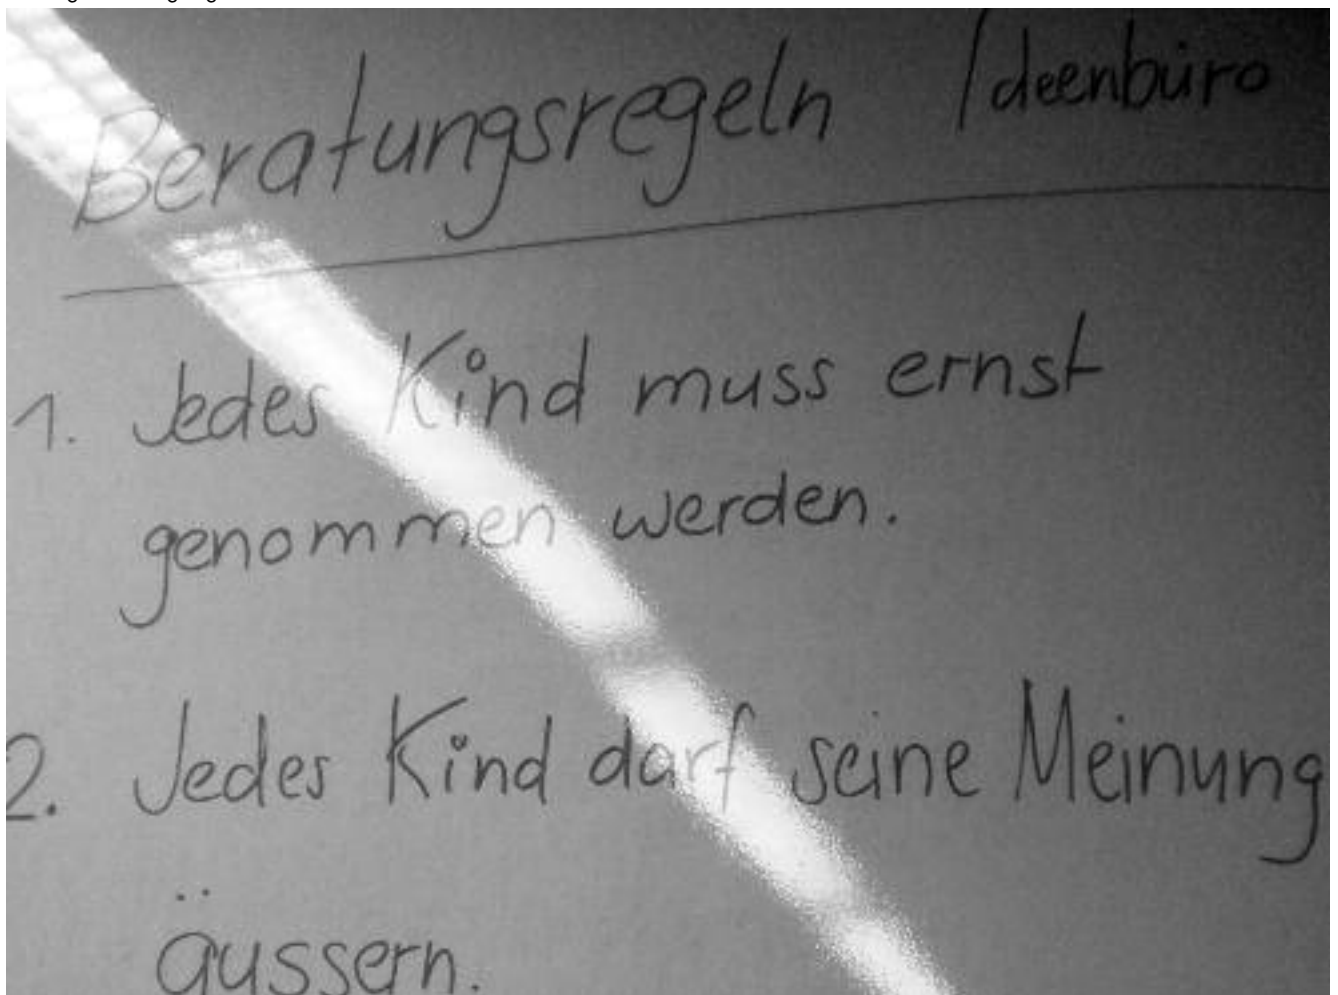 Beratungsregeln Ideenbüro
1. Jedes Kind muss ernst
genommen werden.
2. Jedes Kind darf seine Meinung
äussern.